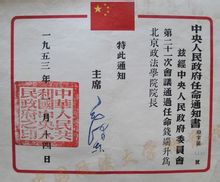 中央人民政府任命通知書
茲經中央人民政府委員會
第二十一次會議通過任命錢端升爲
北京政法學院院長
特此通知
主席
毛澤東
一九五三年 月十四日
中華人民共和國中央人民政府之印